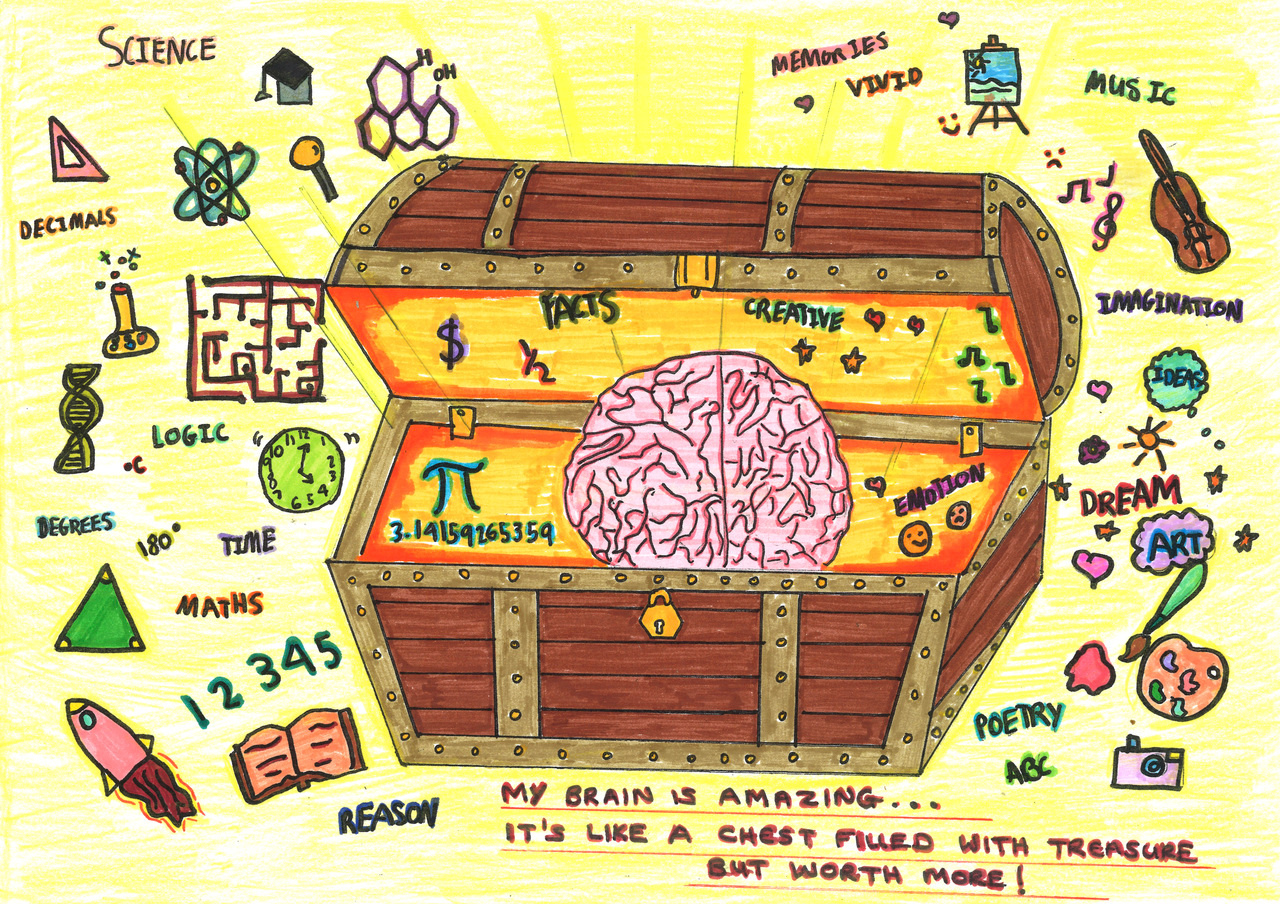 SCIENCE
H
OH
MEMORIES
VIVID
MUSIC
DECIMALS
IMAGINATION
FACTS
CREATIVE
$
1/2
IDEAS
LOGIC
12
11 1
10 2
9 3
8 4
7 6 5
°C
π
3.14159265359
EMOTION
DREAM
ART
DEGREES
180°
TIME
MATHS
1 2 3 4 5
POETRY
ABC
REASON
MY BRAIN IS AMAZING...
IT'S LIKE A CHEST FILLED WITH TREASURE
BUT WORTH MORE!